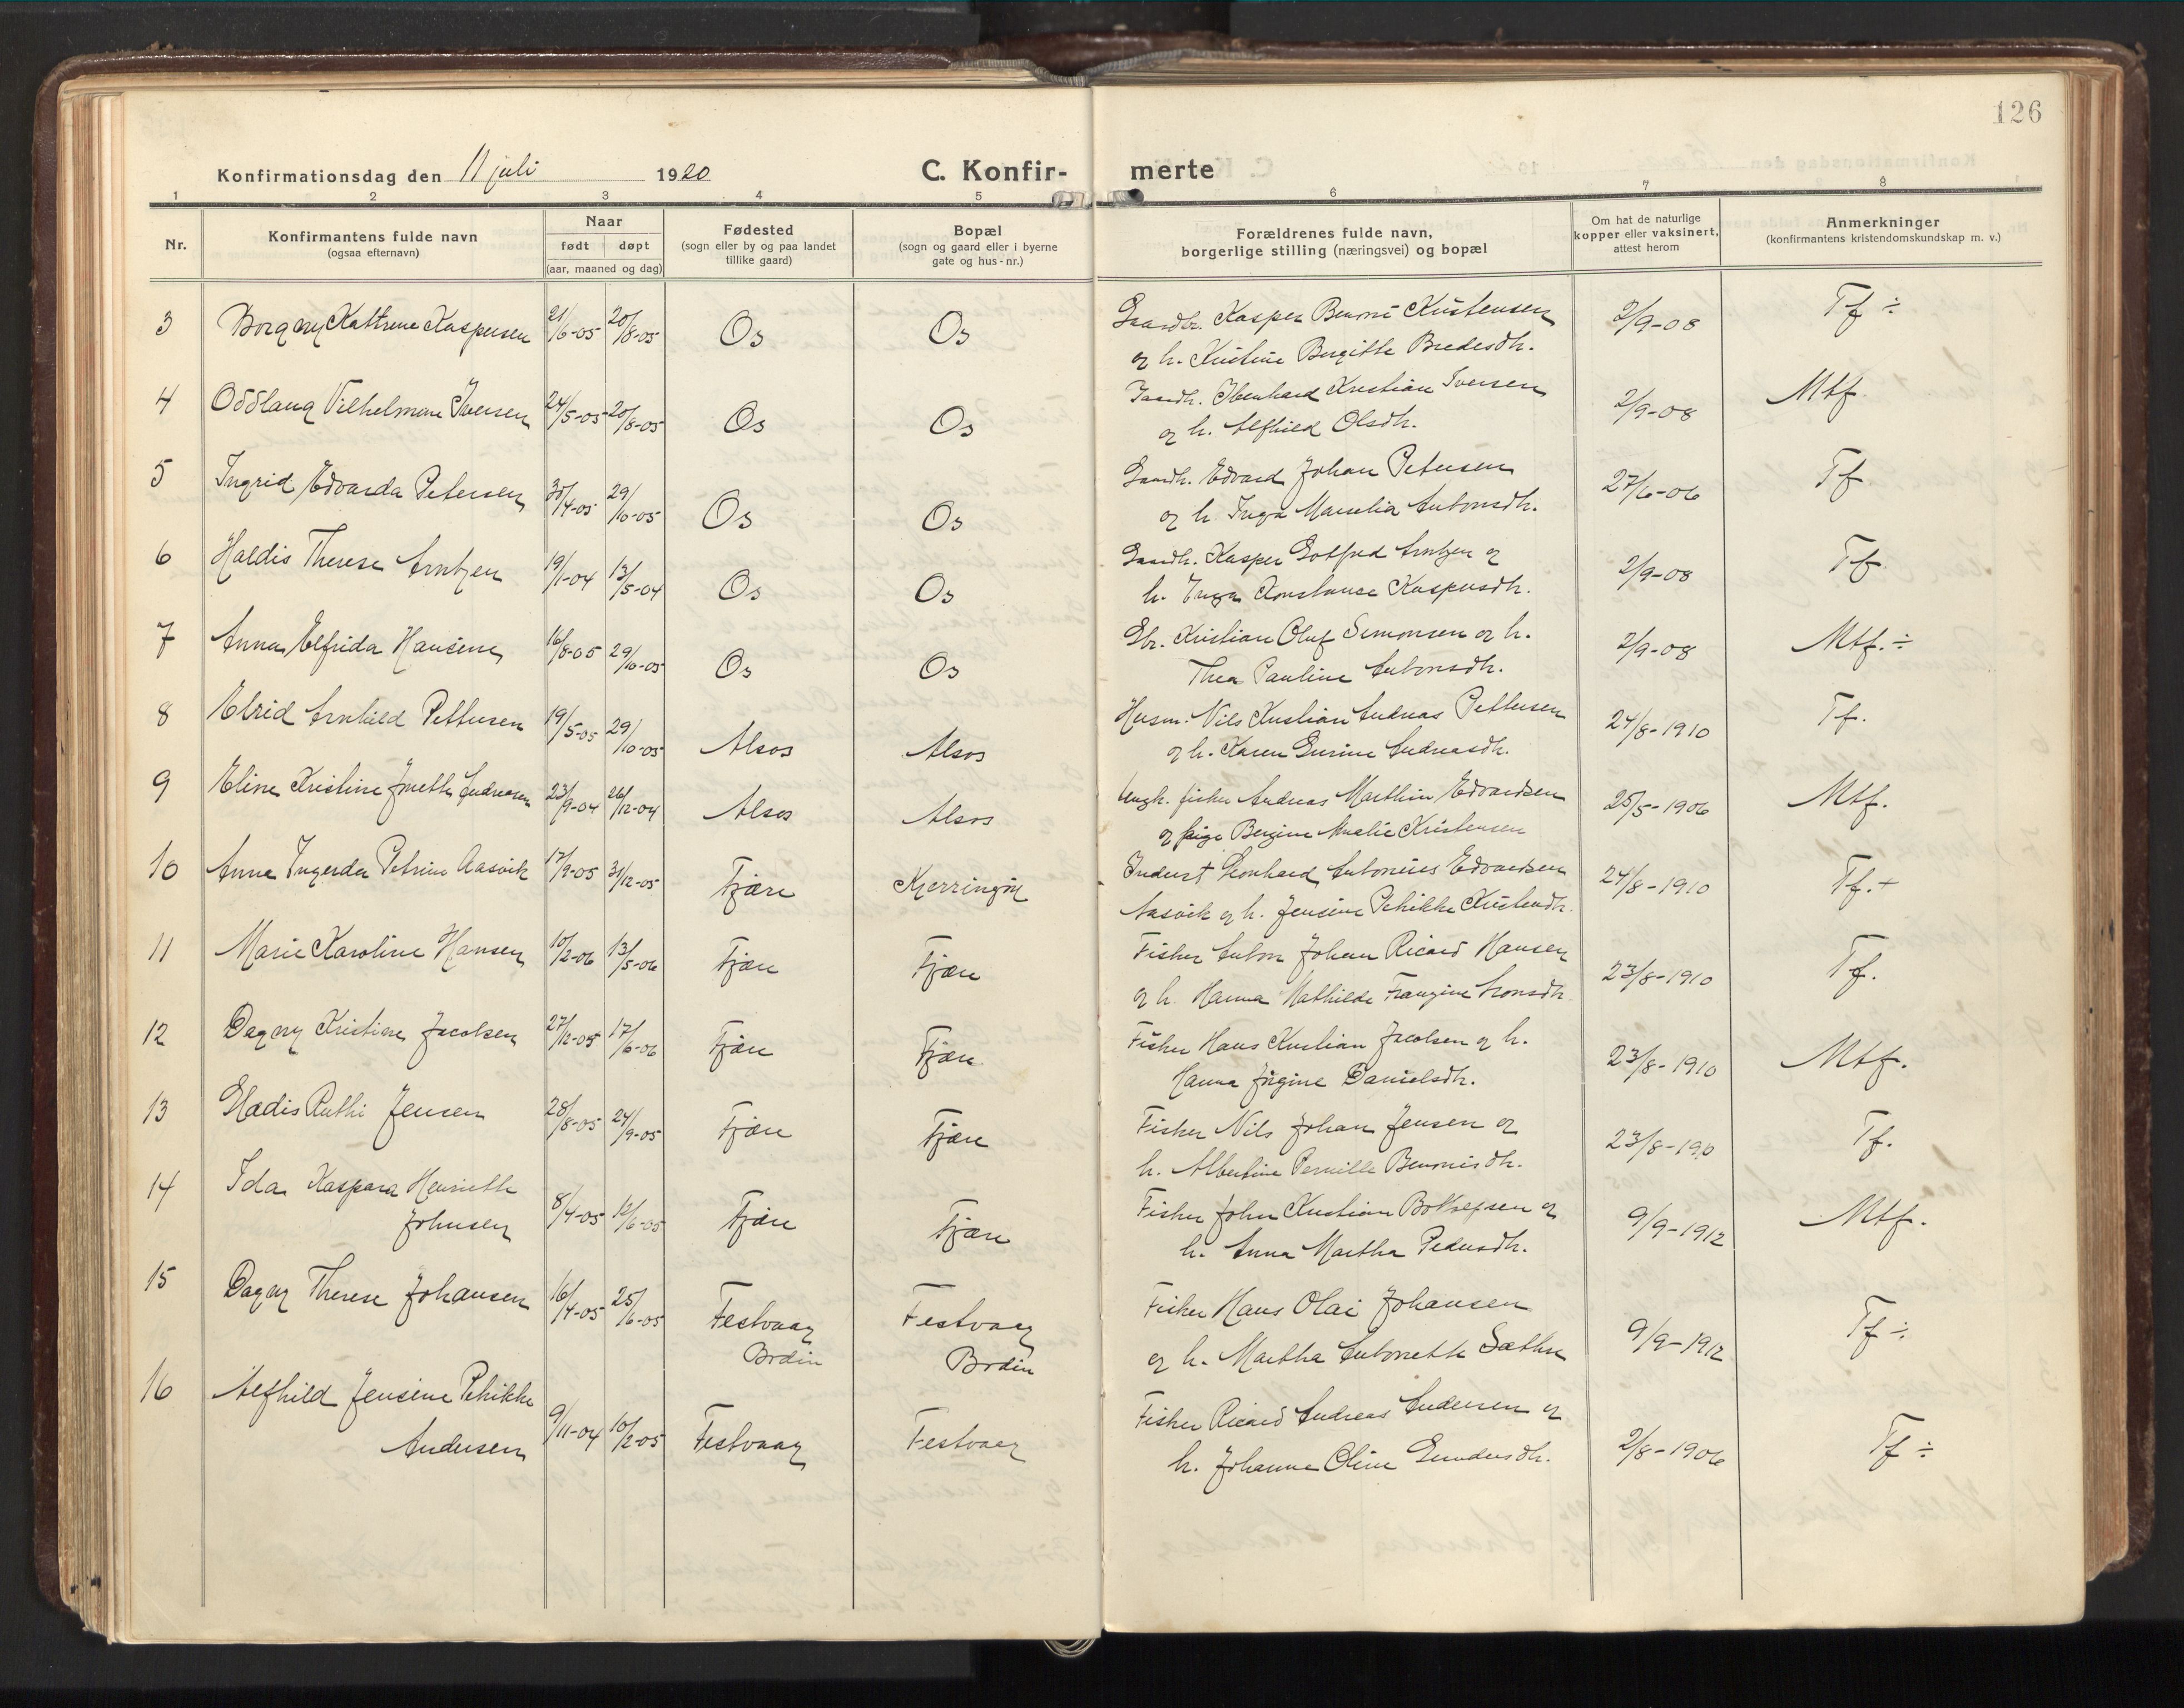 126
Konfirmationsdag den 11 juli 1920 C. Konfir- merte
1 2 3 4 5 6 7 8
Nr. Konfirmantens fulde navn (ogsaa efternavn) Naar født døpt (aar, maaned og dag) Fødested (sogn eller by og paa landet tillike gaard) Bopæl (sogn og gaard eller i byerne gate og hus-nr.) Forældrenes fulde navn, borgerlige stilling (næringsvei) og bopæl Om hat de naturlige kopper eller vaksinert, attest herom Anmerkninger (konfirmantens kristendomskundskap m. v.)
3 Borgny Kathrine Kaspersen 21/6-05 20/8-05 Os Os Gaardbr. Kasper Benoni Kristensen 2/9-08 Tf ÷
og h. Kristine Birgitte Bredesdtr.
4 Oddlaug Vilhelmine Iversen 24/5-05 20/8-05 Os Os Kristian Iversen 2/9-08 Mtf.
og h. Alfhild Olsdtr.
5 Ingrid Edvarda Petersen 30/4-05 29/10-05 Os Os Edvard Johan Petersen 27/6-06 Tf
og h. Inga Marselia Antonsdtr.
6 Haldis Therese Arntzen 19/1-04 13/5-04 Os Os Kasper Gotfred Arntzen og 2/9-08 Tf
h. Inga Konstanse Kaspersdtr.
7 Anna Elfrida Hansine 16/8-05 29/10-05 Os Os Gbr. Kristian Oluf Simonsen og h. 2/9-08 Mtf. ÷
Thea Pauline Antonsdtr.
8 Elrid Arnhild Pettersen 19/5-05 29/10-05 Alsos Alsos Husm. Nils Kristian Andreas Pettersen 24/8-1910 Tf.
og h. Karen Gurine Andreasdtr.
9 Eline Kristine Andreasen 23/9-04 26/12-04 Alsos Alsos Ungk. fisker Andreas Marthin Edvardsen 25/5-1906 Mtf.
og pige Bergine Amalie Kristensen
10 Anna Ingerda Petrine Aasvik 17/9-05 31/12-05 Fjære Kjerringøy Inderst Leonhard Antonius Edvardsen 24/8-1910 Tf.+
Aasvik og h. Jensine Pehikke Kristendtr.
11 Marie Karoline Hansen 10/2-06 13/5-06 Fjære Fjære Fisker Anton Johan Ricard Hansen 23/8-1910 Tf.
og h. Hanna Mathilde Aronsdtr.
12 Dagny Kristine Jacobsen 27/12-05 17/6-06 Fjære Fjære Fisker Hans Kristian Jacobsen og h. 23/8-1910 Mtf.
Hanna Jørgine Danielsdtr.
13 Hadis Ruthi Jensen 28/8-05 24/9-05 Fjære Fjære Fisker Nils Johan Jensen og 23/8-1910 Tf.
h. Albertine Pernille Bennisdtr.
14 Ida Kaspara Henriette 8/4-05 12/6-05 Fjære Fjære Fisker Johan Kristian Botvefsen og 9/9-1912 Mtf.
Johnsen h. Anna Martha Pedersdtr.
15 Dagny Therese Johansen 16/4-05 25/6-05 Festvaag Festvaag Fisker Hans Olai Johansen 9/9-1912 Tf ÷
Bodin Bodin og h. Martha Antonette Sæther
16 Alfhild Jensine Pehikke 9/11-04 10/2-05 Festvaag Festvaag Fisker Ricard Andreas Andersen og 2/8-1906 Tf ÷
Andersen h. Johanna Oline Gundersdtr.